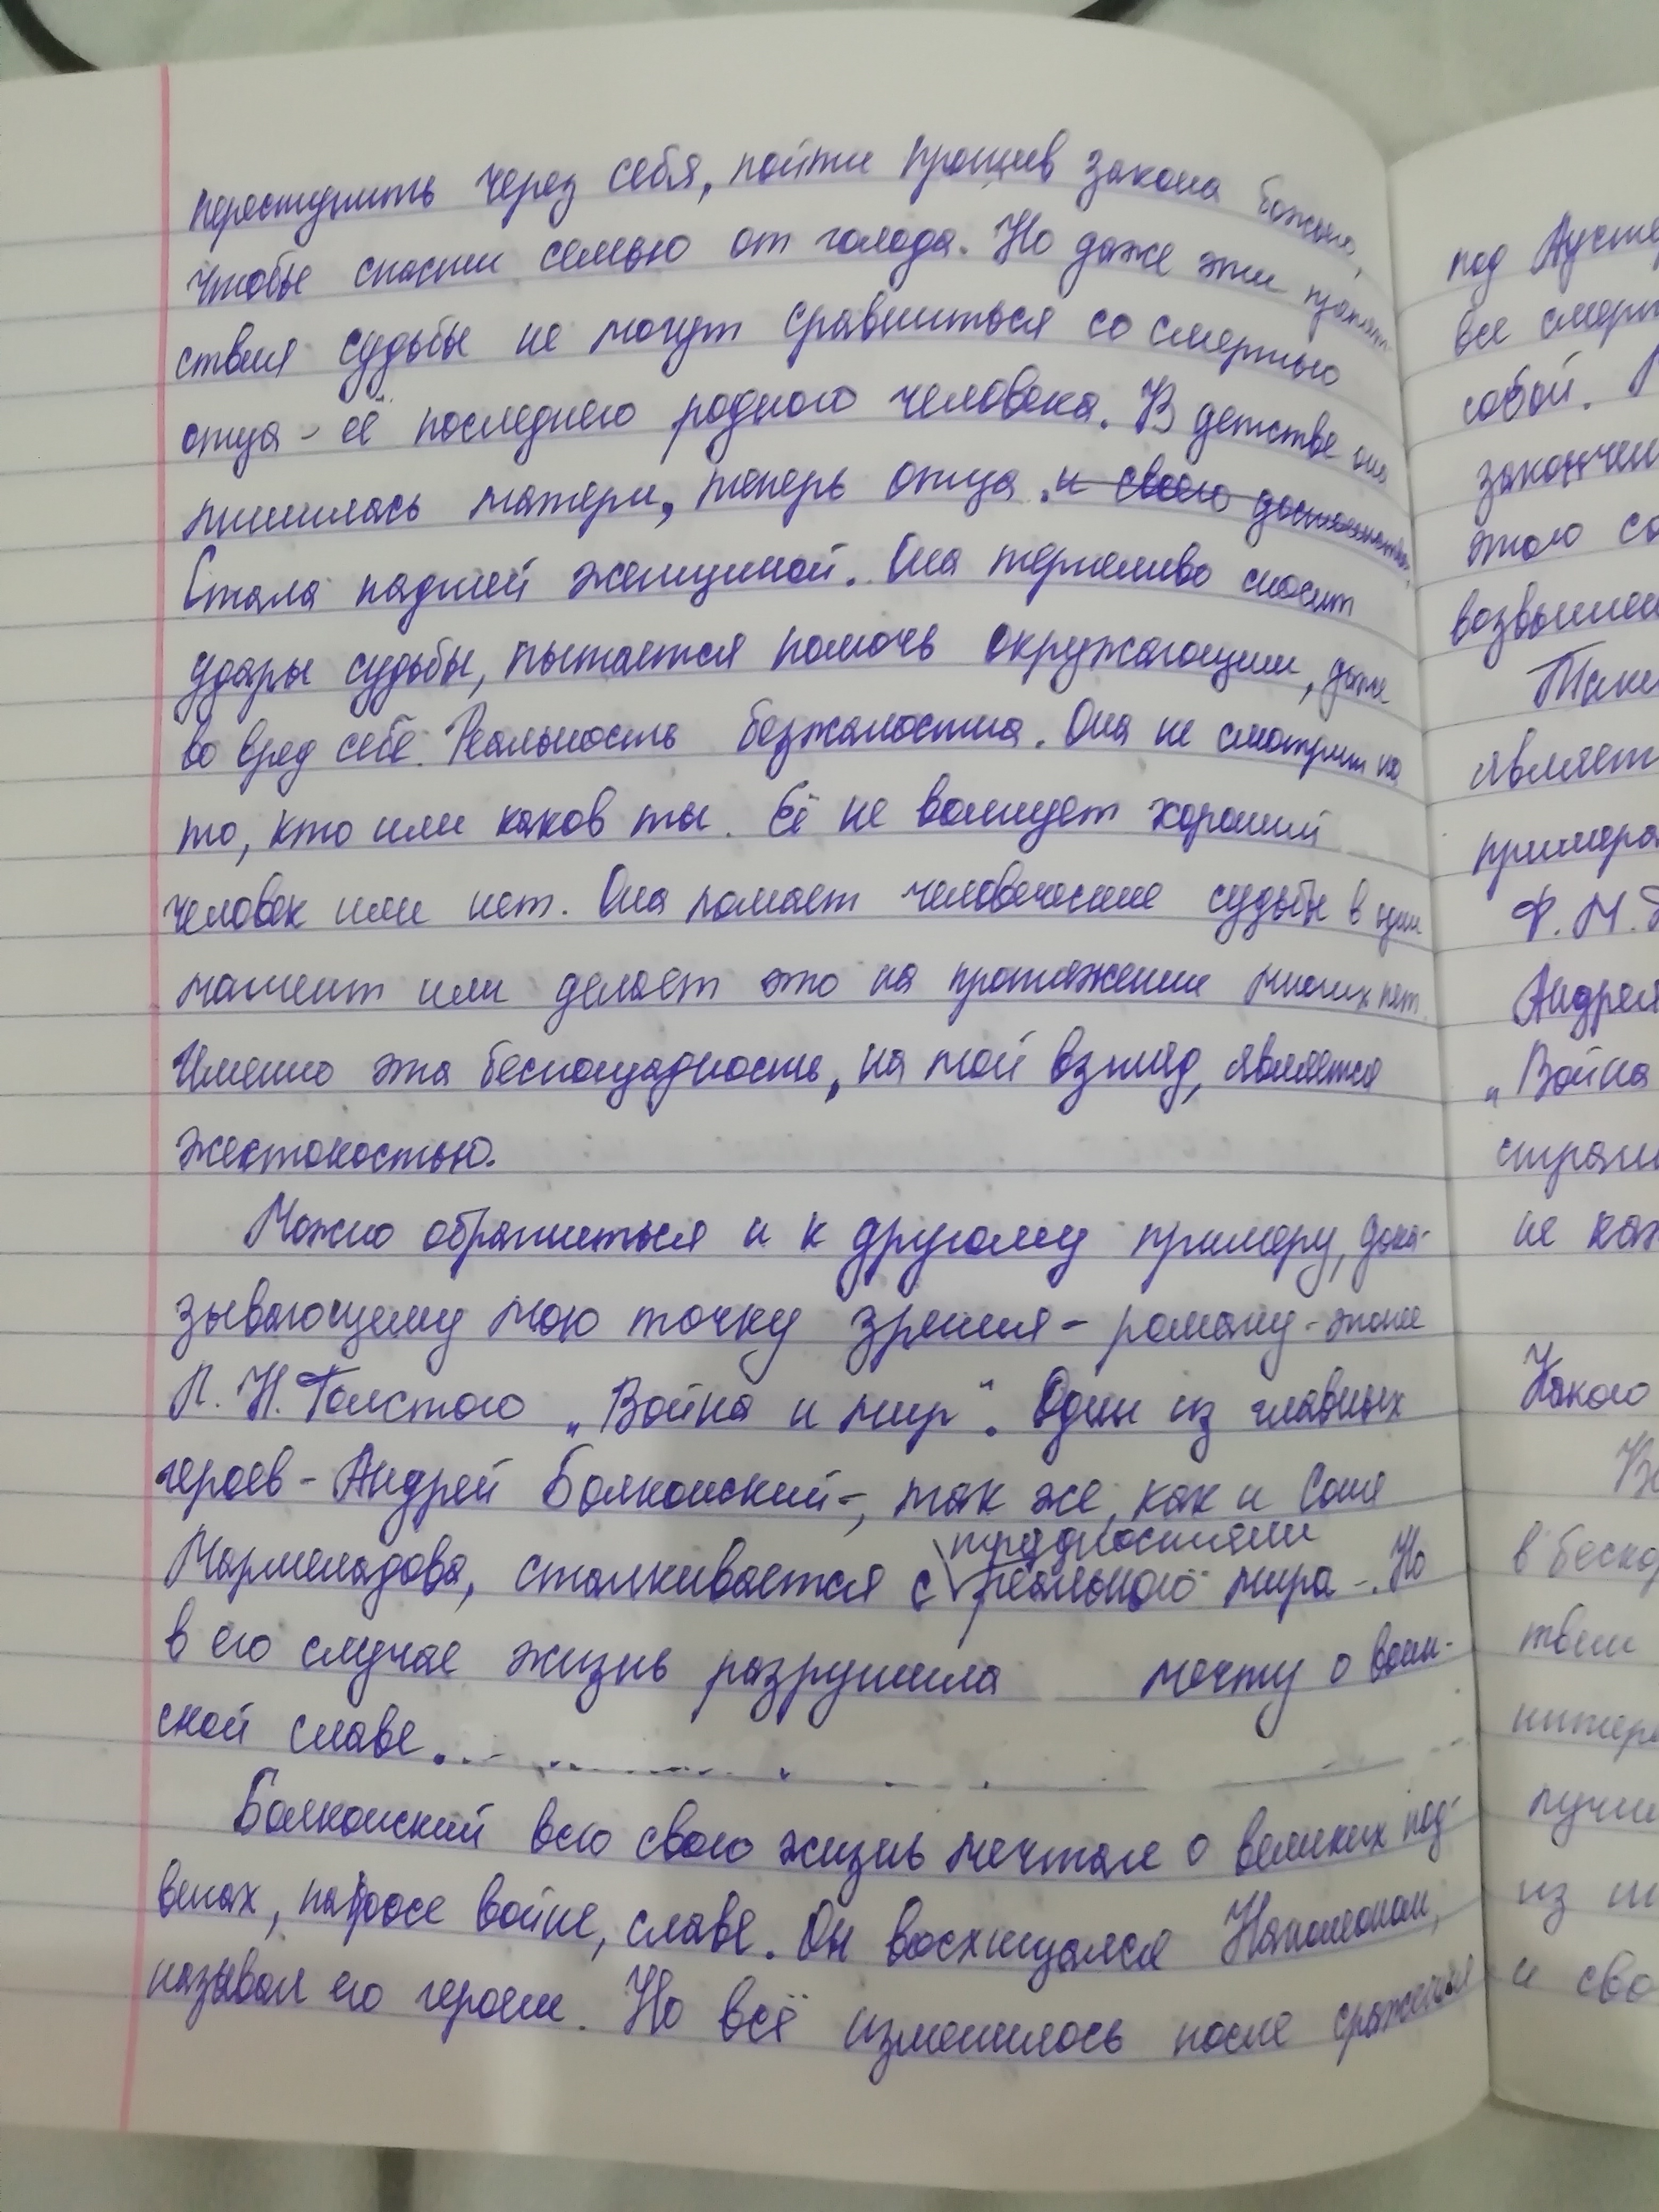 переступить через себя, пойти против закона божьего,
чтобы спасти семью от голода. Но даже эти препят-
ствия судьбы не могут сравниться со смертью
отца - её последнего родного человека. В детстве она
лишилась матери, теперь отца. и своего
Стала падшей женщиной. Она терпеливо сносит
удары судьбы, пытается помочь окружающим, даже
во вред себе. Реальность безжалостна. Она не смотрит на
то, кто или каков ты. Её не волнует хороший
человек или нет. Она ломает человеческие судьбы в один
момент или делает это на протяжении многих лет.
Именно эта беспощадность, на мой взгляд, является
жестокостью.
Можно обратиться и к другому примеру, дока-
зывающему мою точку зрения - роману-эпопее
Л. Н. Толстого „Война и мир“. Один из главных
героев - Андрей Болконский -, так же, как и Соня
трудностями
Мармеладова, сталкивается с реального мира -. Но
в его случае жизнь разрушила мечту о воин-
ской славе.
Болконский всю свою жизнь мечтал о великих под-
вигах, пафосе войне, славе. Он восхищался Наполеоном,
называл его героем. Но всё изменилось после сражения
под
все
собой.
этого
Ф. М.
Андрея
„Война
не
Какого
в
из
и